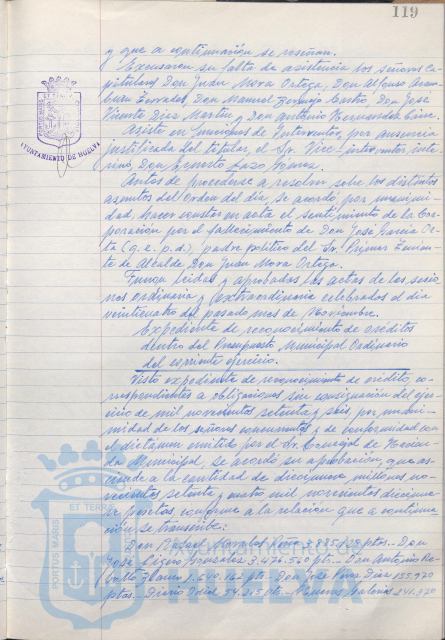 119
y que a continuación se reseñan.
Excusaron su falta de asistencia los señores Ca-
pitulares Don Juan Mora Ortega, Don Alfonso Aram-
buru Terrades, Don Manuel Bermejo Castro, Don José
Vicente Díaz Martín y Don Antonio Hernández Cane.
Asiste en funciones de Interventor, por ausencia
justificada del titular, el Sr. Vice-interventor inte-
rino, Don Ernesto Lazo Gómez.
Antes de procederse a resolver sobre los distintos
asuntos del orden del día, se acordó, por unanimi-
dad, hacer constar en acta el sentimiento de la Cor-
poración por el fallecimiento de Don José García
(q. e. p. d.) padre político del Sr. Primer Tenien-
te de Alcalde Don Juan Mora Ortega.
Fueron leídas y aprobadas las actas de las sesio-
nes ordinaria y extraordinaria celebradas el día
veinticuatro del pasado mes de Noviembre.
Expediente de reconocimiento de créditos
dentro del Presupuesto Municipal Ordinario
del corriente ejercicio.
Visto expediente de reconocimiento de crédito, co-
rrespondientes a obligaciones sin consignación del ejer-
cicio de mil novecientos setenta y seis, por unani-
midad de los señores concurrentes y de conformidad con
el dictamen emitido por el Sr. Concejal de Hacien-
da Municipal, se acordó su aprobación, que as-
ciende a la cantidad de diecinueve millones no-
vecientos setenta y cuatro mil novecientos diecinue-
ve pesetas, conforme a la relación que a continua-
ción se transcribe:
Don Rafael Morales ptas.- Don
José González 3.476.540 pts.- Don Antonio Re-
bollo 1.640.162 pts.- Don José Pérez Díaz 155.970
ptas.- Diario Odiel 54.215 pts.- 241.370
AYUNTAMIENTO DE HUELVA
PORTUS MARIS ET TERRAE
Ayuntamiento de
HUELVA